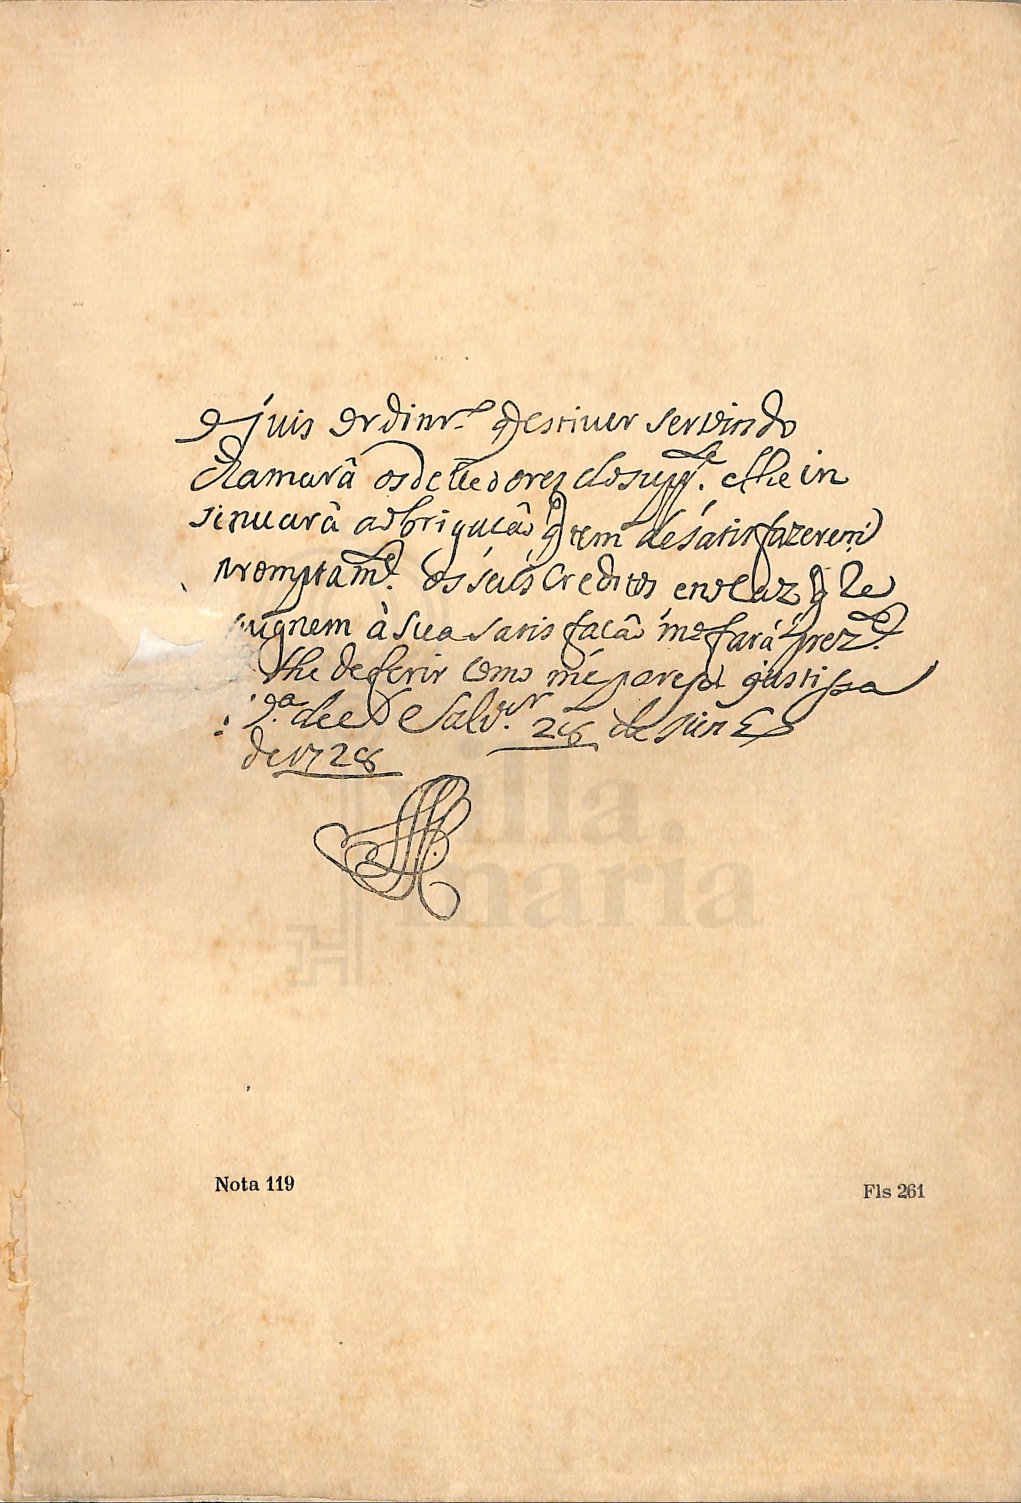 O juis ordinr.º q estiver servindo
chamarâ os devedores do supp.te e lhe in
sinuarâ a obrigacâo q tem de satisfazerem
promptam.te os seus creditos en cazo q Re
pugnem à sua satisfacâo mo fará prez.te
p.ª lhe deferir como me pareser justissa
de Salv.or 28 de
de 1728
Nota 119
Fls 261
villa.
maria